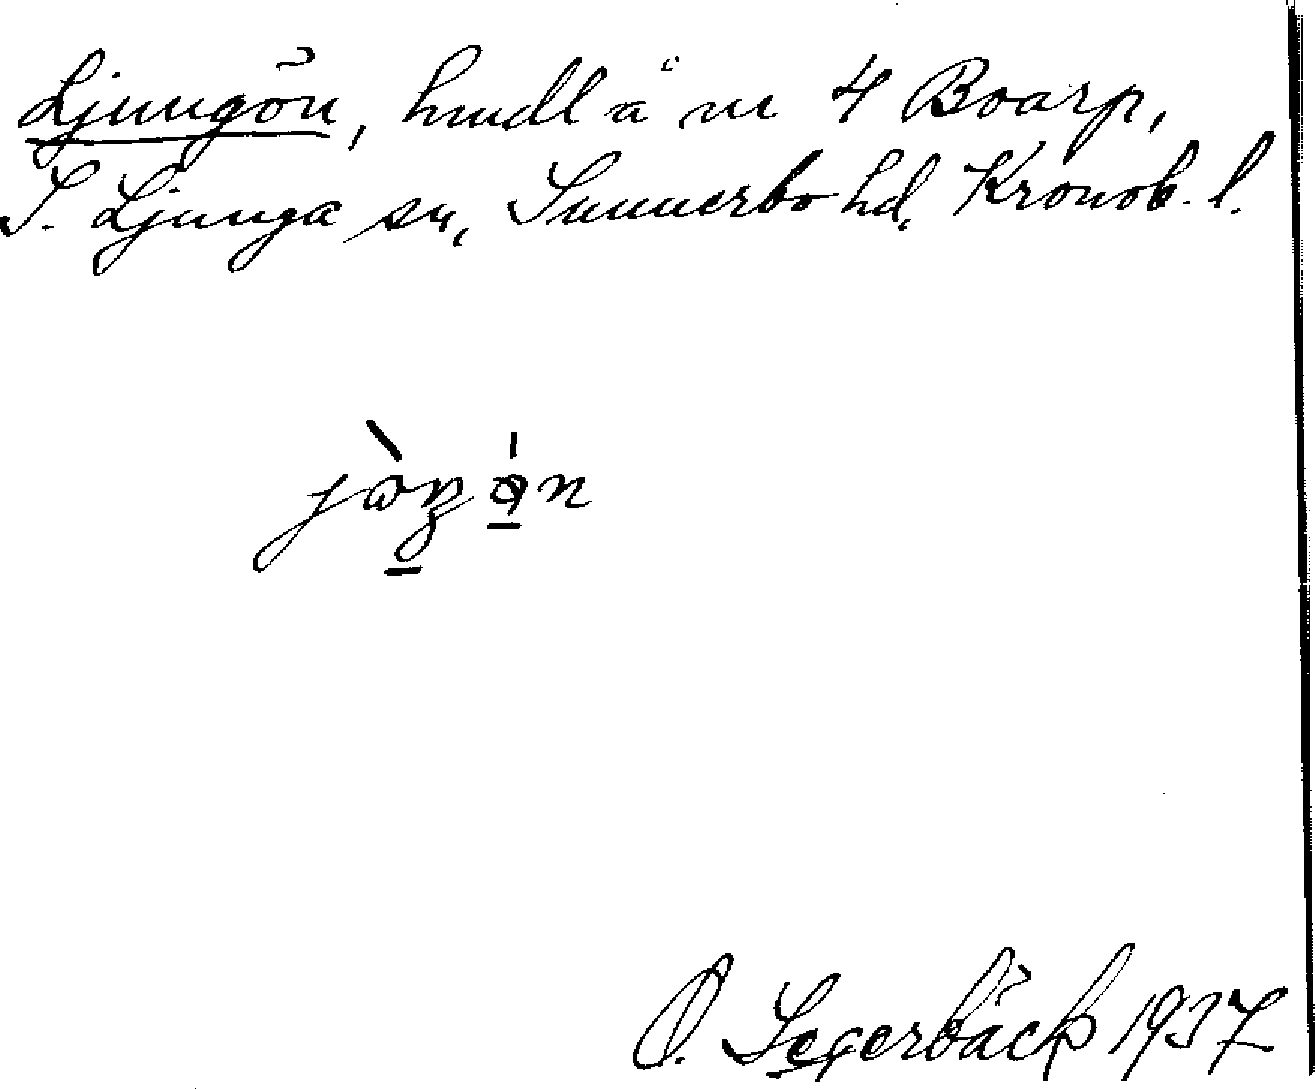 Ljungön, hmdl å nr 4 Boarp,
S. Ljunga sn, Sunnerbo hd. Kronob. l.
O. Segerbäck 1937